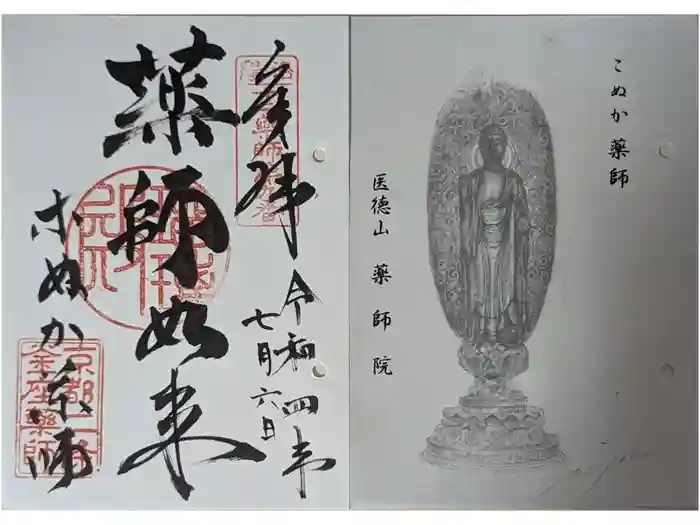 奉拝
令和四年
七月六日
薬師如来
こぬか薬師
京都二条
金座薬師
こぬか薬師
医徳山 薬師院